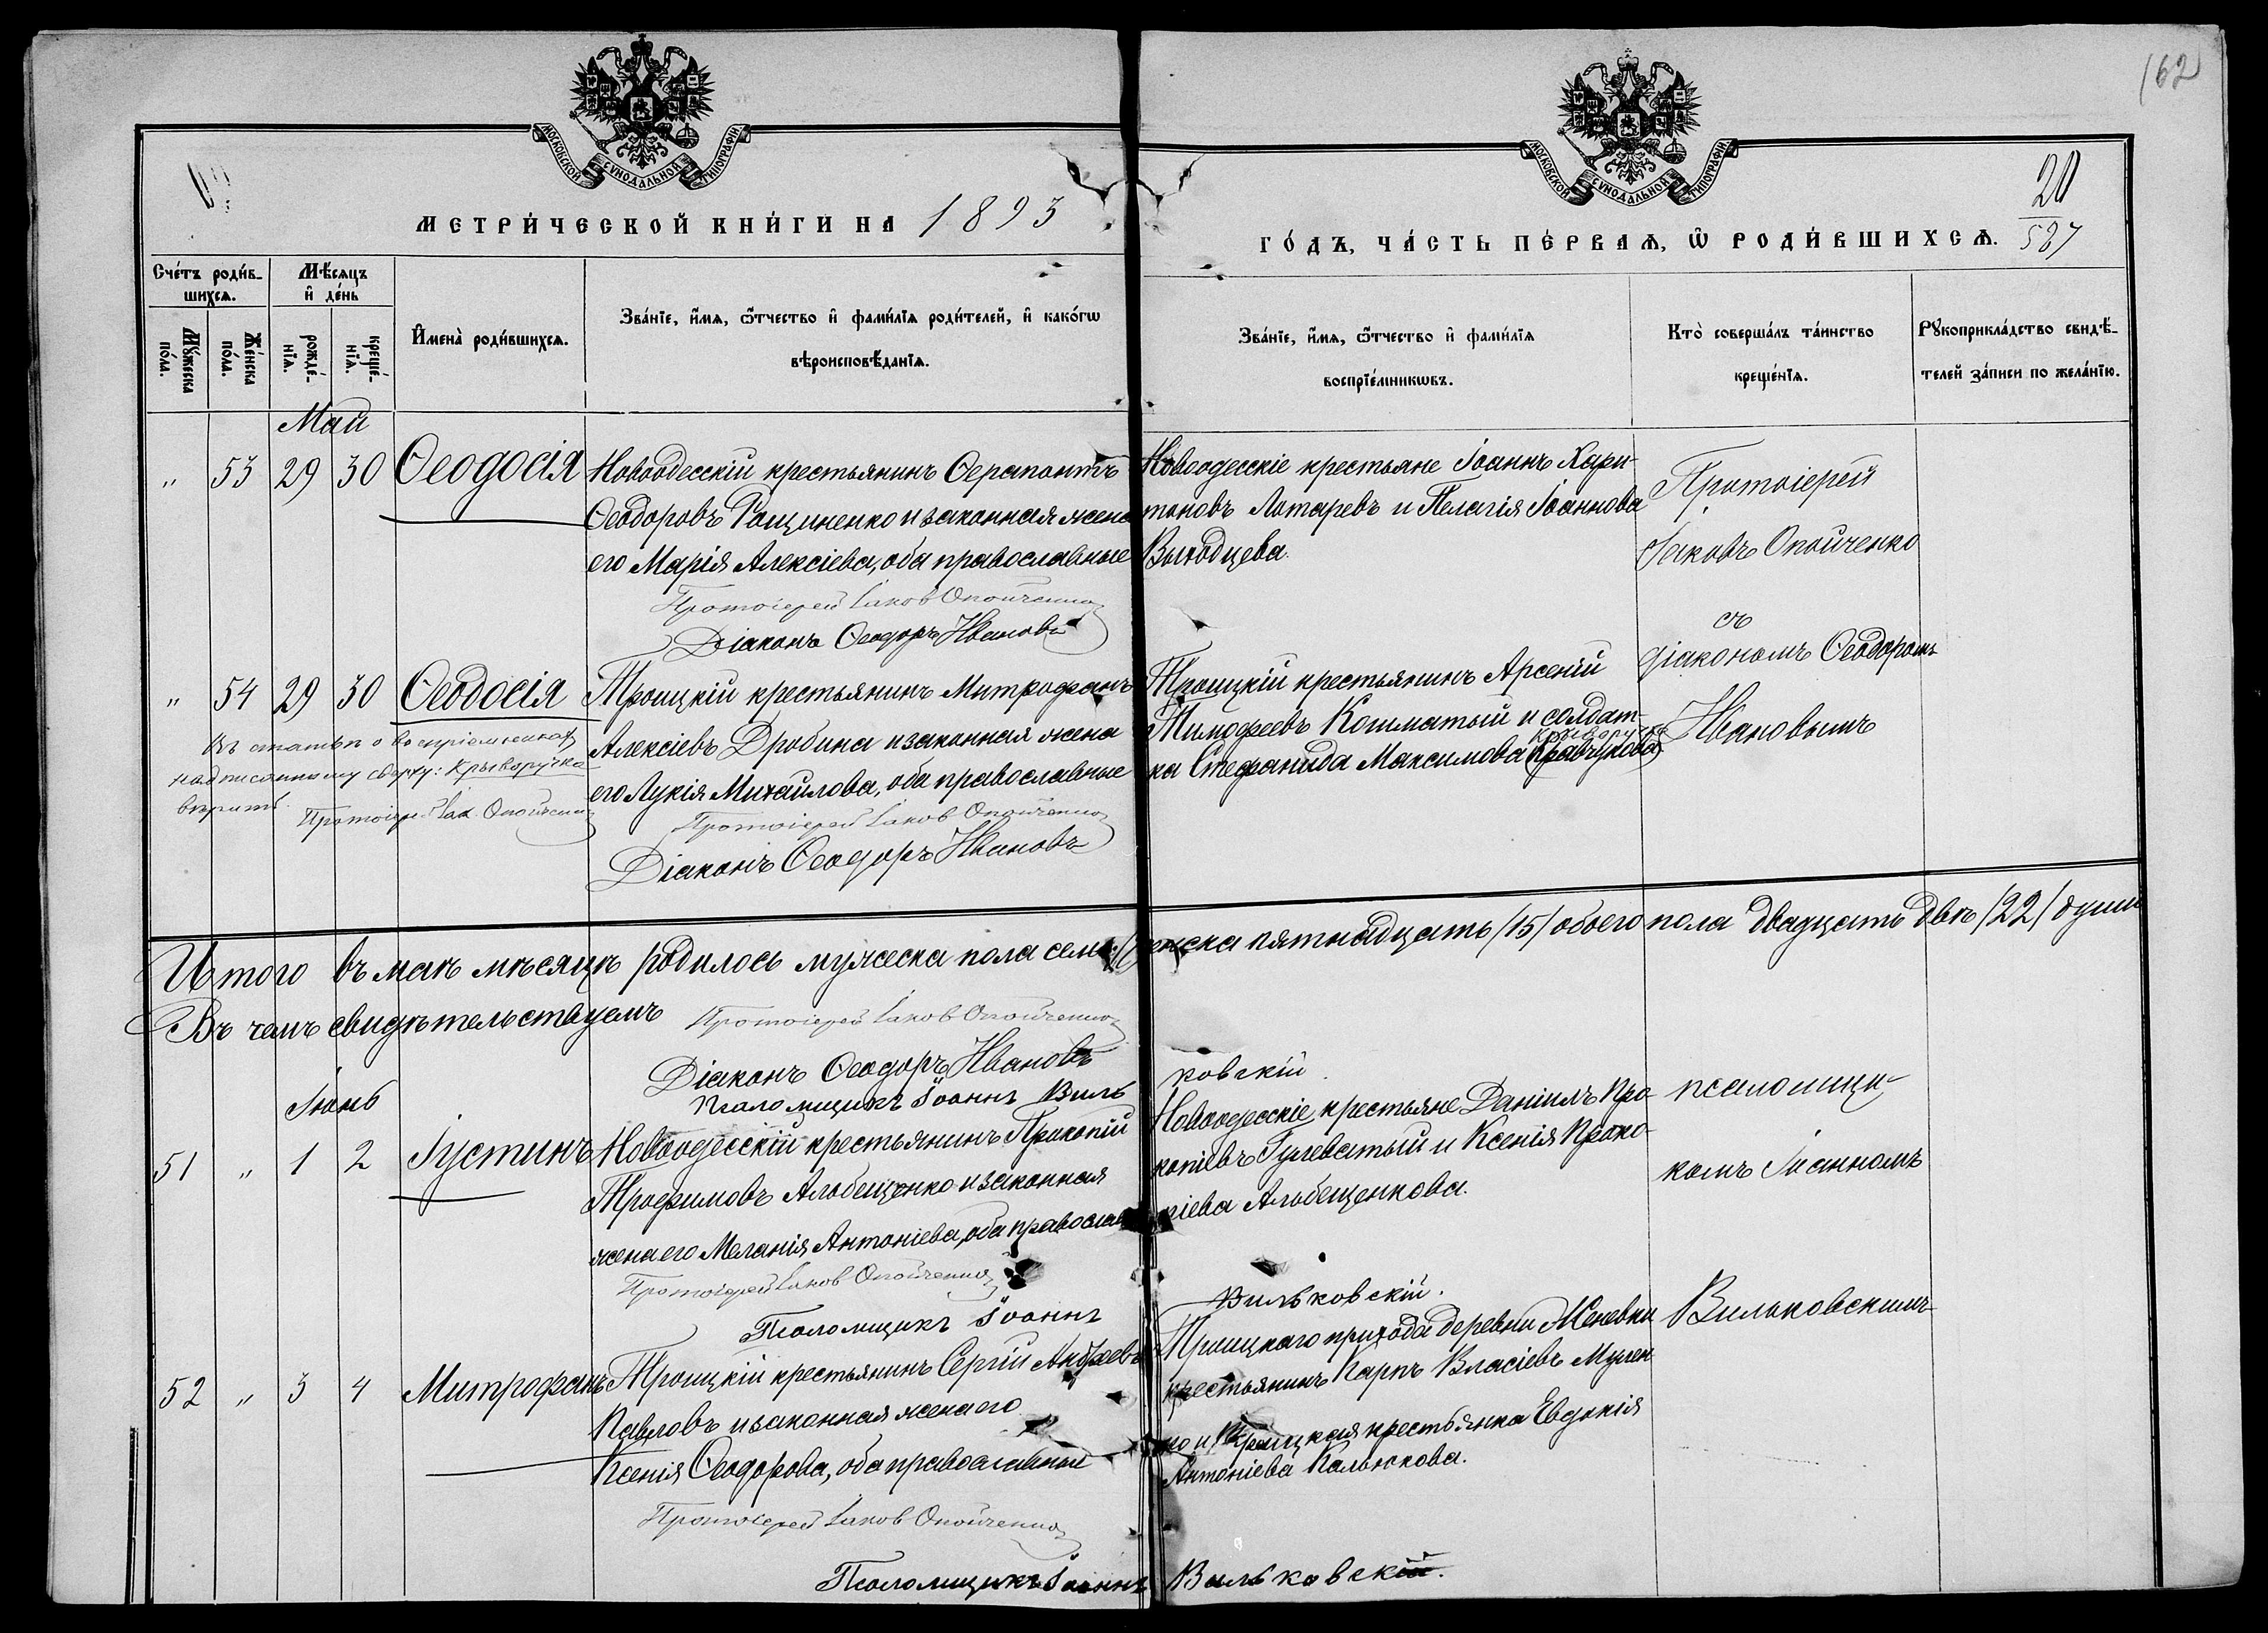 162
МОСКОВСКОЙ СѴНОДАЛЬНОЙ ТИПОГРАФІИ
МОСКОВСКОЙ СѴНОДАЛЬНОЙ ТИПОГРАФІИ
МЕТРИ́ЧЕСКОЙ КНИ́ГИ НА 1893
ГО́ДЪ, ЧА́СТЬ ПЕ́РВАѦ, Ѡ РОДИ́ВШИХСѦ.
20
587
Сче́тъ роди́в-
шихсѧ.
Мѣ́сѧцъ
и҆ де́нь
Мꙋ́жеска
по́ла.
Же́нска
по́ла.
рожде́-
нїѧ.
креще́-
нїѧ.
И҆мена̀ роди́вшихсѧ.
Зва́нїе, и҆́мѧ, ѻ҆́тчество и҆ фами́лїѧ роди́телей, и҆ како́гѡ
вѣроисповѣ́данїѧ.
Зва́нїе, и҆́мѧ, ѻ҆́тчество и҆ фами́лїѧ
воспрїе́мникѡвъ.
Кто̀ соверша́лъ та́инство
креще́нїѧ.
Рꙋкоприкла́дство свидѣ́-
телей за́писи по жела́нїю.
Май
„ 53 29 30 Ѳеодосія
Новоодесскій крестьянинъ Ѳерапонтъ
Ѳеодоровъ Рощиненко и законная жена
его Марія Алексіева, оба православные
Протоіерей Іаков Опойченко
Діаконъ Ѳеодоръ Ивановъ
Новоодесскіе крестьяне Іоаннъ Хари-
тоновъ Лотаревъ и Пелагія Іоаннова
Выходцева.
Протоіерей
Іаковъ Опойченко
съ
діакономъ Ѳеодоромъ
Ивановымъ
„ 54 29 30 Ѳеодосія
Въ статьѣ о воспріемниках
надписанному сверху: Крыворучка
вѣрить.
Протоіерей Іак. Опойченко
Троицкій крестьянинъ Митрофанъ
Алексіевъ Дробина и законная жена
его Лукія Михайлова, оба православные
Протоіерей Іаков Опойченко
Діаконъ Ѳеодоръ Ивановъ
Троицкій крестьянинъ Арсеній
Тимофеевъ Кошматый и солдат-
Крыворучка
ка Стефанида Максимова (Кравчукова)
Итого въ маѣ мѣсяцѣ родилось мужеска пола семь женска пятнадцать /15/ обоего пола двадцать двѣ /22/ души
Въ чемъ свидѣтельствуемъ
Протоіерей Іаков Опойченко
Діаконъ Ѳеодоръ Ивановъ
Псаломщикъ Іоаннъ Вильковскій.
Іюнь
51 „ 1 2 Іустинъ
Новоодесскій крестьянинъ Прокопій
Трофимовъ Альбещенко и законная
жена его Меланія Антоніева, оба православ
Протоіерей Іаков Опойченко
Псаломщикъ Іоаннъ Вильковскій.
Новоодесскіе крестьяне Даніилъ Про-
копіевъ Гулеватый и Ксенія Проко-
піева Альбещенкова.
псаломщи-
комъ Іоанномъ
Вильковскимъ
52 „ 3 4 Митрофанъ
Троицкій крестьянинъ Сергій Андреевъ
Павловъ и законная жена его
Ксенія Ѳеодорова, оба православные
Протоіерей Іаков Опойченко
Псаломщикъ Іоаннъ Вильковскій.
Троицкаго прихода деревни
крестьянинъ Карпъ Власіевъ
но и Троицкая крестьянка Евдокія
Антоніева